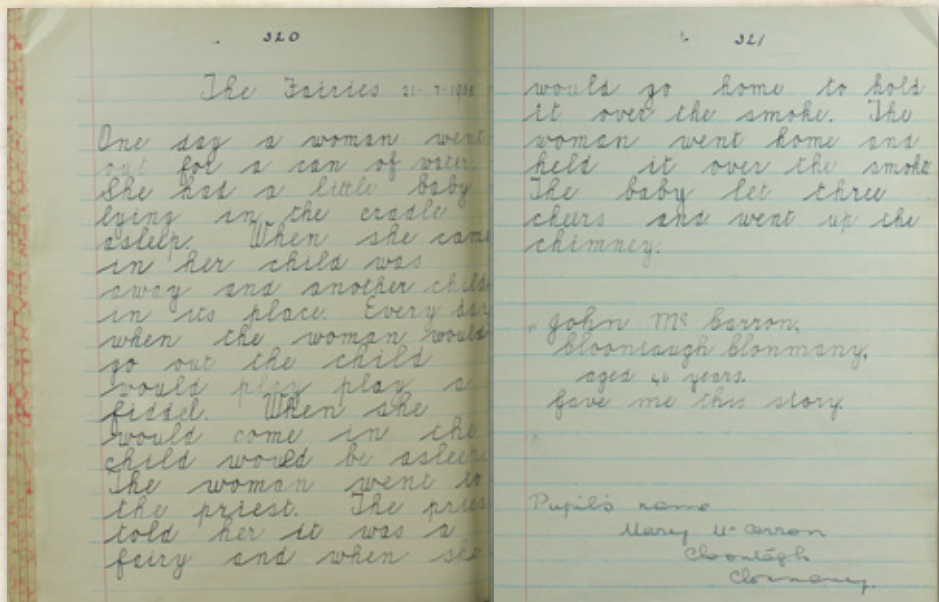 320
The Fairies 21-7-1938
One day a woman went
out for a can of water.
She had a little baby
lying in the cradle
asleep. When she came
in her child was
away and another child
in its place. Every day
when the woman would
go out the child
would play play a
fiddel. When she
would come in the
child would be asleep.
The woman went to
the priest. The pries
told her it was a
fairy and when she
321
would go home to hold
it over the smoke. The
woman went home and
held it over the smoke
The baby let three
cheers and went up the
chimney.
John Mc Carron,
Cloontaugh Clonmany,
aged 46 years.
Gave me this story.
Pupil's name
Mary Mc Carron
Cloontagh
Clonmany.